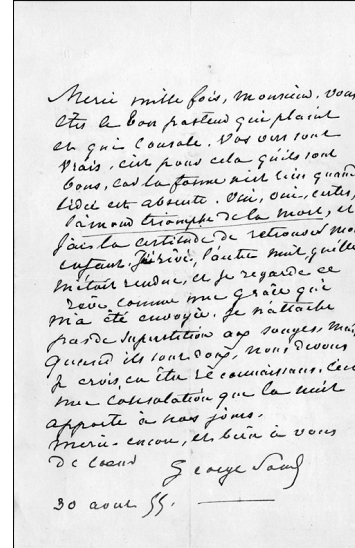 Merci mille fois, Monsieur. Vous
êtes le bon pasteur qui plaint
et qui console. Vos vers sont
vrais, c'est pour cela qu'ils sont
bons, car la forme n'est rien quand
l'idée est absente. Oui, oui, certes,
l'amour triomphe de la mort, et
j'ai la certitude de retrouver mon
enfant. J'ai rêvé, l'autre nuit, qu'elle
m'était rendue, et je regarde ce
rêve comme une grâce qui
m'a été envoyée. Je n'attache
pas de superstition aux songes, mais
quand ils sont doux, nous devons
je crois, en être reconnaissans. C'est
une consolation que la nuit
apporte à nos jours.
Merci encore, et bien à vous
de coeur
George Sand
30 aout 55.